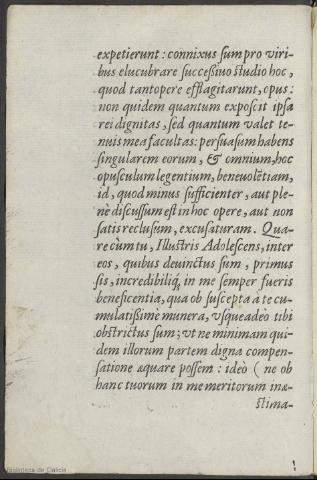 expetierunt : connixus sum pro viri-
bus elucubrare successiuo studio hoc,
quod tantopere efflagitarunt, opus:
non quidem quantum exposcit ipsa
rei dignitas, sed quantum valet te-
nuis mea facultas: persuasum habens
singularem eorum, & omnium, hoc
opusculum legentium, beneuolẽtiam,
id, quod minus sufficienter, aut ple-
nè discussum est in hoc opere, aut non
satis reclusum, excusaturam. Qua-
re cùm tu, Illustris Adolescens, inter
eos, quibus deuinctus sum, primus
sis, incredibiliq́, in me semper fueris
beneficentia, qua ob suscepta à te cu-
mulatißimè munera, vsqueadeò tibi
obstrictus sum; vt ne minimam qui-
dem illorum partem digna compen-
satione æquare possem : ideò ( ne ob
hanc tuorum in me meritorum inæ-
stima-
Biblioteca de Galicia